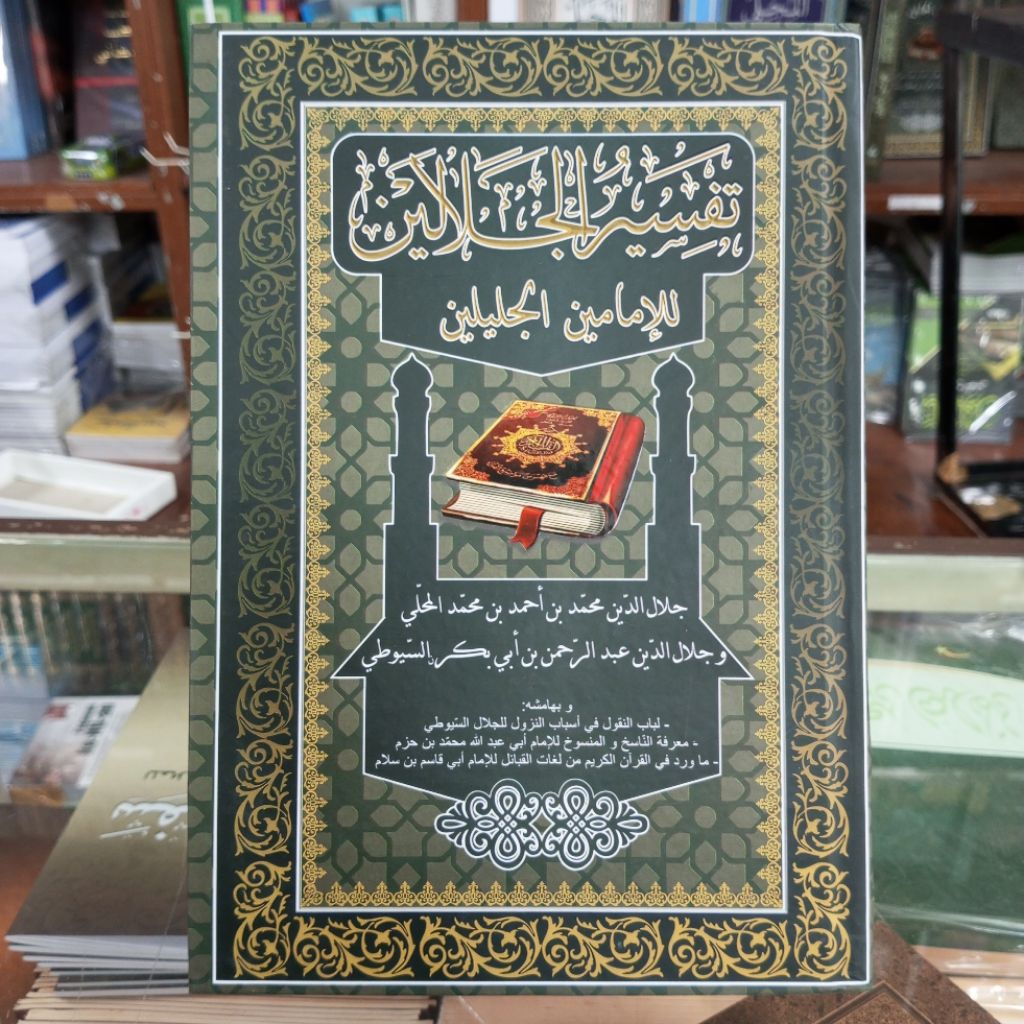 تَفْسِيرُ الْجَلَالَيْنِ
للإمامين الجليلين
جلال الدّين محمّد بن أحمد بن محمّد المحلّي
و جلال الدّين عبد الرّحمن بن أبي بكر السّيوطي
و بهامشه:
- لباب النقول في أسباب النزول للجلال السّيوطي
- معرفة النّاسخ و المنسوخ للإمام أبي عبد الله محمّد بن حزم
- ما ورد في القرآن الكريم من لغات القبائل للإمام أبي قاسم بن سلام